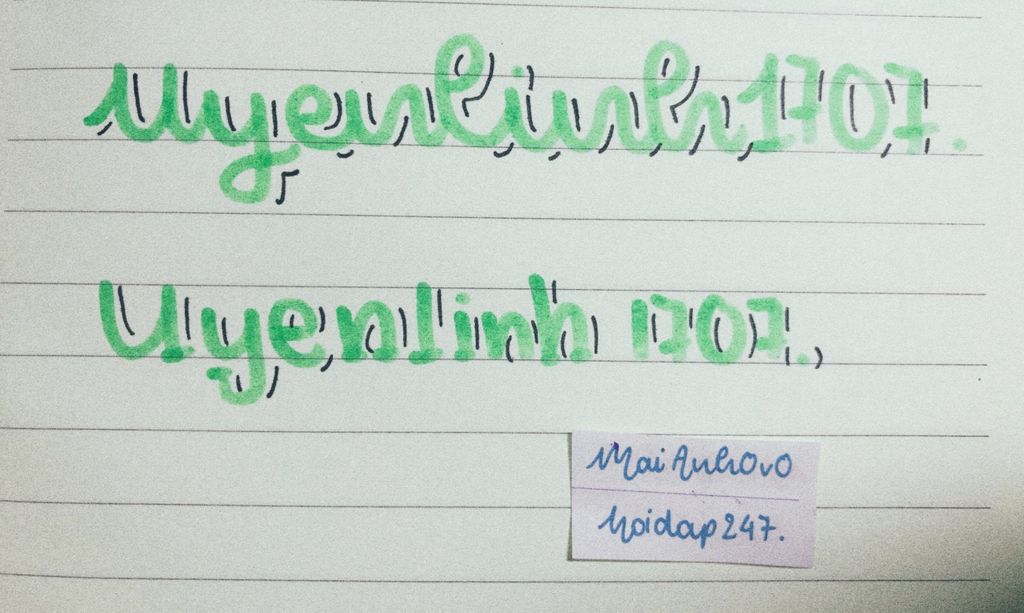 Uyenlinh1707.
Uyenlinh 1707.
MaiAnhOvO
hoidap247.